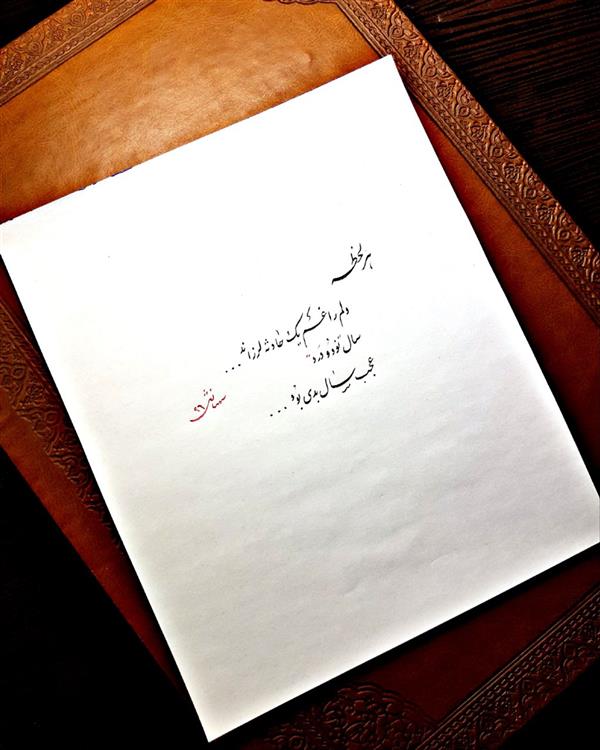 هر لحظه
دلم را غم یک حادثه لرزاند ...
سال "نود و درد"
عجب سال بدی بود ...